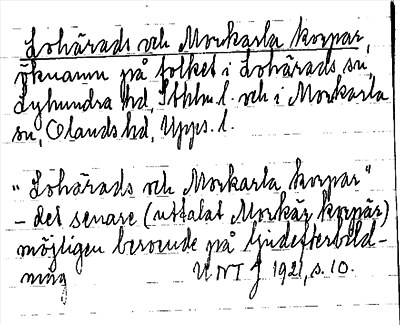 Lohärads och Morkarla korpar,
öknamn på folket i Lohärads sn,
Lyhundra hd, Sthlm. l. och i Morkarla
sn, Olands hd, Upps. l.
"Lohärads och Morkarla korpar"
- det senare (uttalat Morkär korpär)
möjligen beroende på ljudefterbild-
ning UNT J 1921, s. 10.